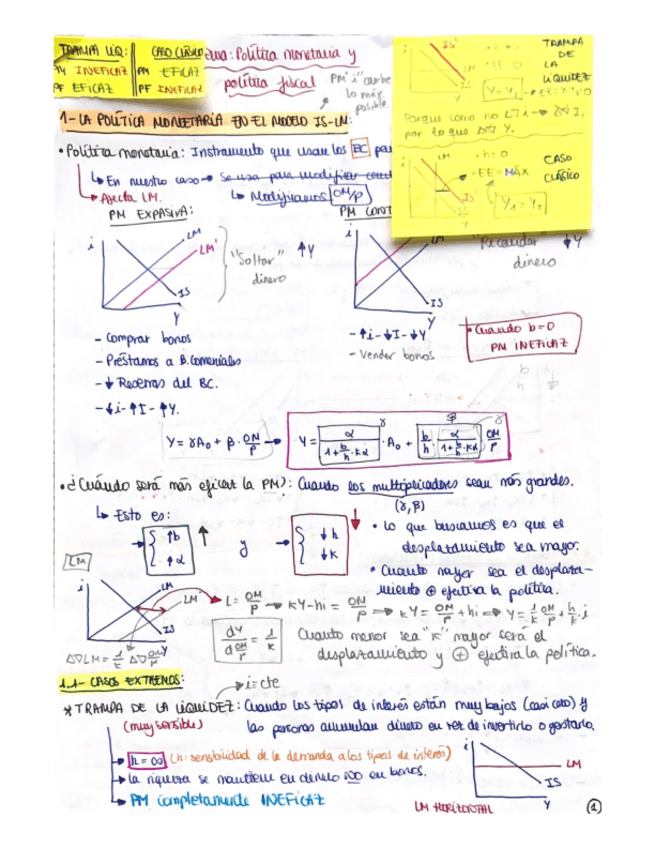 TRAMPA LIQ:
PM INEFICAZ
PF EFICAZ
CASO CLÁSICO
PM EFICAZ
PF INEFICAZ
Política monetaria y
política fiscal
PM "i" cambie
lo máx.
posible.
TRAMPA
DE
LA
LIQUIDEZ
IS'
i
IS
Y
Porque como no ΔI
por lo que Y.
CASO
CLÁSICO
h=0
EE = MÁX
Y1=Y2
1-LA POLÍTICA MONETARIA EN EL MODELO IS-LM:
• Política monetaria: Instrumento que usan los BC
↳ En nuestro caso → Se usa para modificar
↳ Afecta LM.
↳ Modificamos OM/P
PM EXPASIVA:
PM CONT
i
LM
LM'
IS
Y
"Soltar"
dinero
↑Y
i
LM
IS
Y
"Recaudar"
dinero
↓Y
- Comprar bonos
- Préstamos a B. Comerciales
- ↓ Reservas del BC.
- ↓i-↑I-↑Y.
- ↑i-↓I-↓Y
- Vender bonos
• Cuando b=0
PM INEFICAZ
Y = γA0 + β · OM/P → Y = α/(1+b/h·kα) · A0 + b/h · α/(1+b/h·kα) · OM/P
γ
β
• ¿Cuándo será más eficaz la PM?: Cuando los multiplicadores sean más grandes.
(γ, β)
↳ Esto es:
→ { ↑b ↑α ↑ y → { ↓h ↓k ↓
• Lo que buscamos es que el
desplazamiento sea mayor.
• Cuando mayor sea el desplaza-
miento ⊕ efectiva la política.
LM
i
LM
LM'
IS
Y
L = OM/P → kY-hi = OM/P → kY = OM/P + hi → Y = 1/k OM/P + h/k i
dY/d OM/P = 1/k
Cuanto menor sea "k" mayor será el
desplazamiento y ⊕ efectiva la política.
1.1- CASOS EXTREMOS:
→ i=cte
* TRAMPA DE LA LIQUIDEZ: Cuando los tipos de interés están muy bajos (casi cero) y
(muy sensible)
las personas acumulan dinero en vez de invertirlo o gastarlo.
→ h=∞ (h: sensibilidad de la demanda a los tipos de interés)
→ La riqueza se mantiene en dinero NO en bonos.
→ PM completamente INEFICAZ
i
LM
IS
Y
LM HORIZONTAL
1